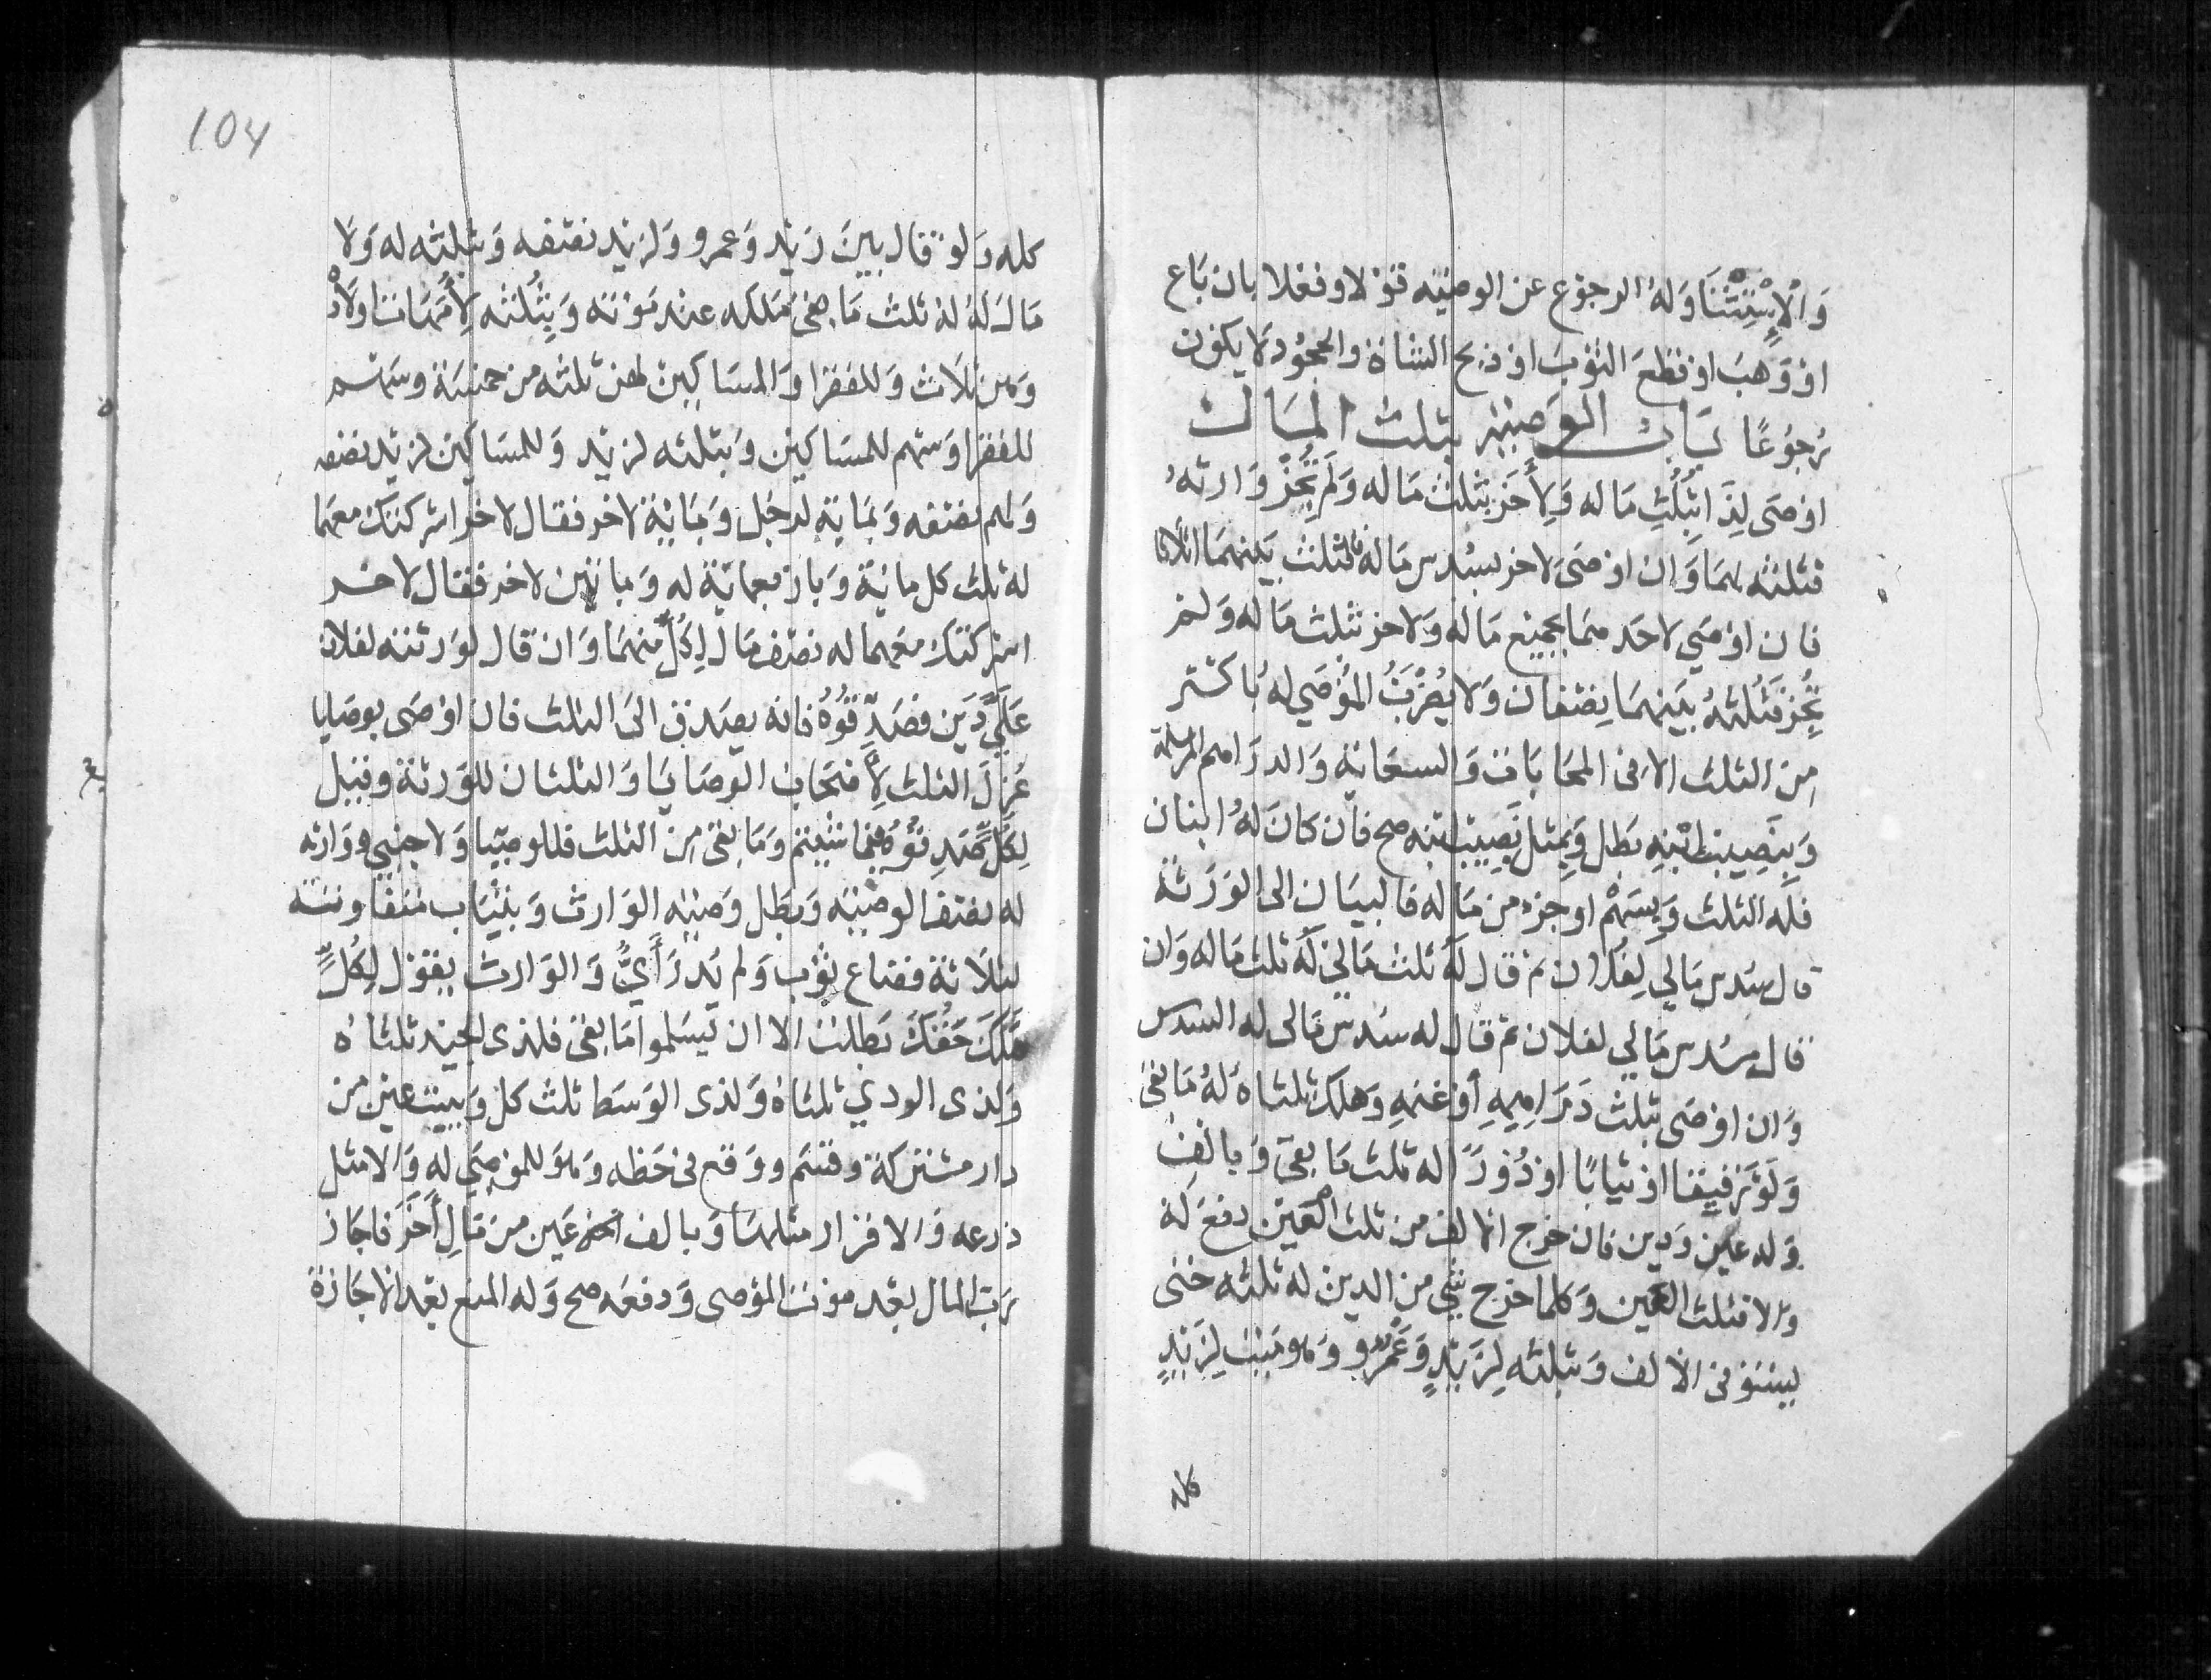 وَالْاِسْتِثْنَا وَلَهُ الرجوع عن الوصيّه قوْلا وفعْلا بان بَاع
اوْ وَهبَ اوْ قطعَ الثوْبَ اوْ ذبح الشاة والجحوُد لا يكون
رُجوُعًا بَاب الوَصيّة بثلث المَال
اوْصَى لِذَا بثُلُثِ مَاله وَلِأٰخَر بثلث مَاله وَلَم تُجِزْ وَارثهُ
فثلثه لهمَا وَان اوْصَى لاخر بسُدس مَاله فالثلث بَينهمَا اثلاثا
فان اوْصَي لاحَد هما بجميْع مَاله وَلاخر بثلث مَاله وَلم
تُجِزْ فَثُلثهُ بَيْنهمَا نِصْفان وَلا يُضْرَبُ المُوْصَي لهُ باكثر
مِن الثلث الا في المحَابَات وَالسعَاية وَالدرَاهم المرسلة
وَبِنَصِيْبِ ابْنِهِ بَطل وَبِمِثل نَصِيْبِ ابنه صح فان كان لهُ ابنان
فلَه الثلث وَبِسَهْم اوجزء من مَاله فالبيَان الى الوَرَثة
قال سدس مَالي لِفُلان ثم قال لهُ ثلث مَالي لَهُ ثلث مَاله وَان
قال سُدس مَالي لفلان ثم قال له سُدس مَالى له السدس
وَان اوْصَى بثلث دَرَاهِمِهِ أوْ غنمهِ وَهلك ثلثاهُ لهُ مَا بَقي
وَلَوْ رَقيْقا اوْ ثيابًا اوْ دُوْرًا له ثلث مَا بقيَ وَبالفٍ
وَله عين وَدين فان خرج الالف من ثلث العَيْن دفعَ لهُ
وَالا فثلث العَين وَكلما خرج شي من الدين له ثلثه حتى
يستوْفى الالف وَبثلثه لِزَيْدٍ وَعَمْرٍو وَهو مَيِّت لِزَيْدٍ
كله
104
كله وَلوْ قال بينَ زيْد وَعمرو وَلزيْد نصْفه وَبثلثه له وَلا
مَالَ لَهُ لهُ ثلث مَا يملكه عند مَوْته وَبِثُلثه لأُمّهَات اولادْ
وَهن ثلَاث وَللفقرَا وَالمسَاكيْن لهن ثلثه من خمسَة وسَهْم
للفقرَا وَسهْم للمسَاكيْن وَبثلثه لزيْد وَللمسَاكيْن لزيْد نصْفه
وَلهم نصْفه وَبمَاية لرجُل وَبمَايَة لاخر فقال لاخر اشركتك معهمَا
له ثلث كل مائة وَباربعماية له وَمائتين لاخر فقال لاخر
اشركتك معَهما له نصْف مَال لِكُلٍّ منهمَا وَان قال لوَرثته لفلان
عَليَّ دَيْن فصَدِّقُوْهُ فانه يصَدق الىَ الثلث فان اوْصَى بوصَايا
عُزِلَ الثلث لِأَصْحَاب الوصَايَا وَالثلثان للوَرثة وقيْل
لِكُلٍّ صَدِّقُوْهُ فيْمَا شئتم وَمَا بقى مِن الثلث فللوصَايا وَلاجنبيٍ ووَارثه
له نصْف الوصيّه وَبَطل وَصيّته الوَارث وَبثيَاب متفَاوتة
لثلَاثة فضَاع ثوْب وَلم يُدرَ أَيٌّ وَالوَارث يقوْل لِكُلٍّ
هَلَكَ حَقُّكَ بَطلت الا ان يّسَلموا مَا بقيَ فلذى الجيْد ثلثَاهُ
وَلذى الردي ثلثاهُ وَلذى الوَسَط ثلث كل وَببيت عين من
دار مشتركة وقسَم ووَقع في حَظه وَهوَ للموْصَي لهِ وَالا مثل
ذرعه وَالاقرَار مثلهَا وَبالف عَين من مَالِ أٰخَرَ فاجَاز
رَب المَال بعْد موْت الموْصى وَدفعَه صح وَله المنع بعْد الاجَازة